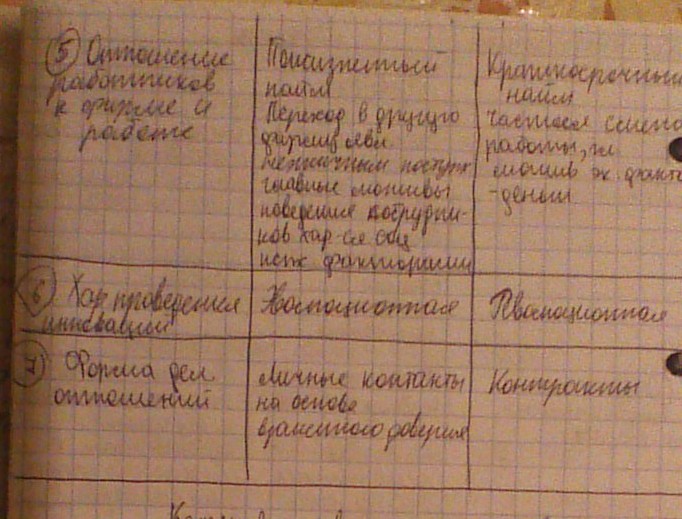 5 Отношение
работников
к фирме и
работе
Пожизненный
найм
Переход в другую
фирму явл.
неэтичным поступк
главные мотивы
поведения сотрудни-
ков хар-ся соц
псих факторами
Краткосрочный
найм
частая смена
работы, гл
мотив эк. факто
-деньги
6 Хар проведения
инноваций
Эволюционная
Революционная
7 Форма дел
отношений
личные контакты
на основе
взаимного доверия
Контракты